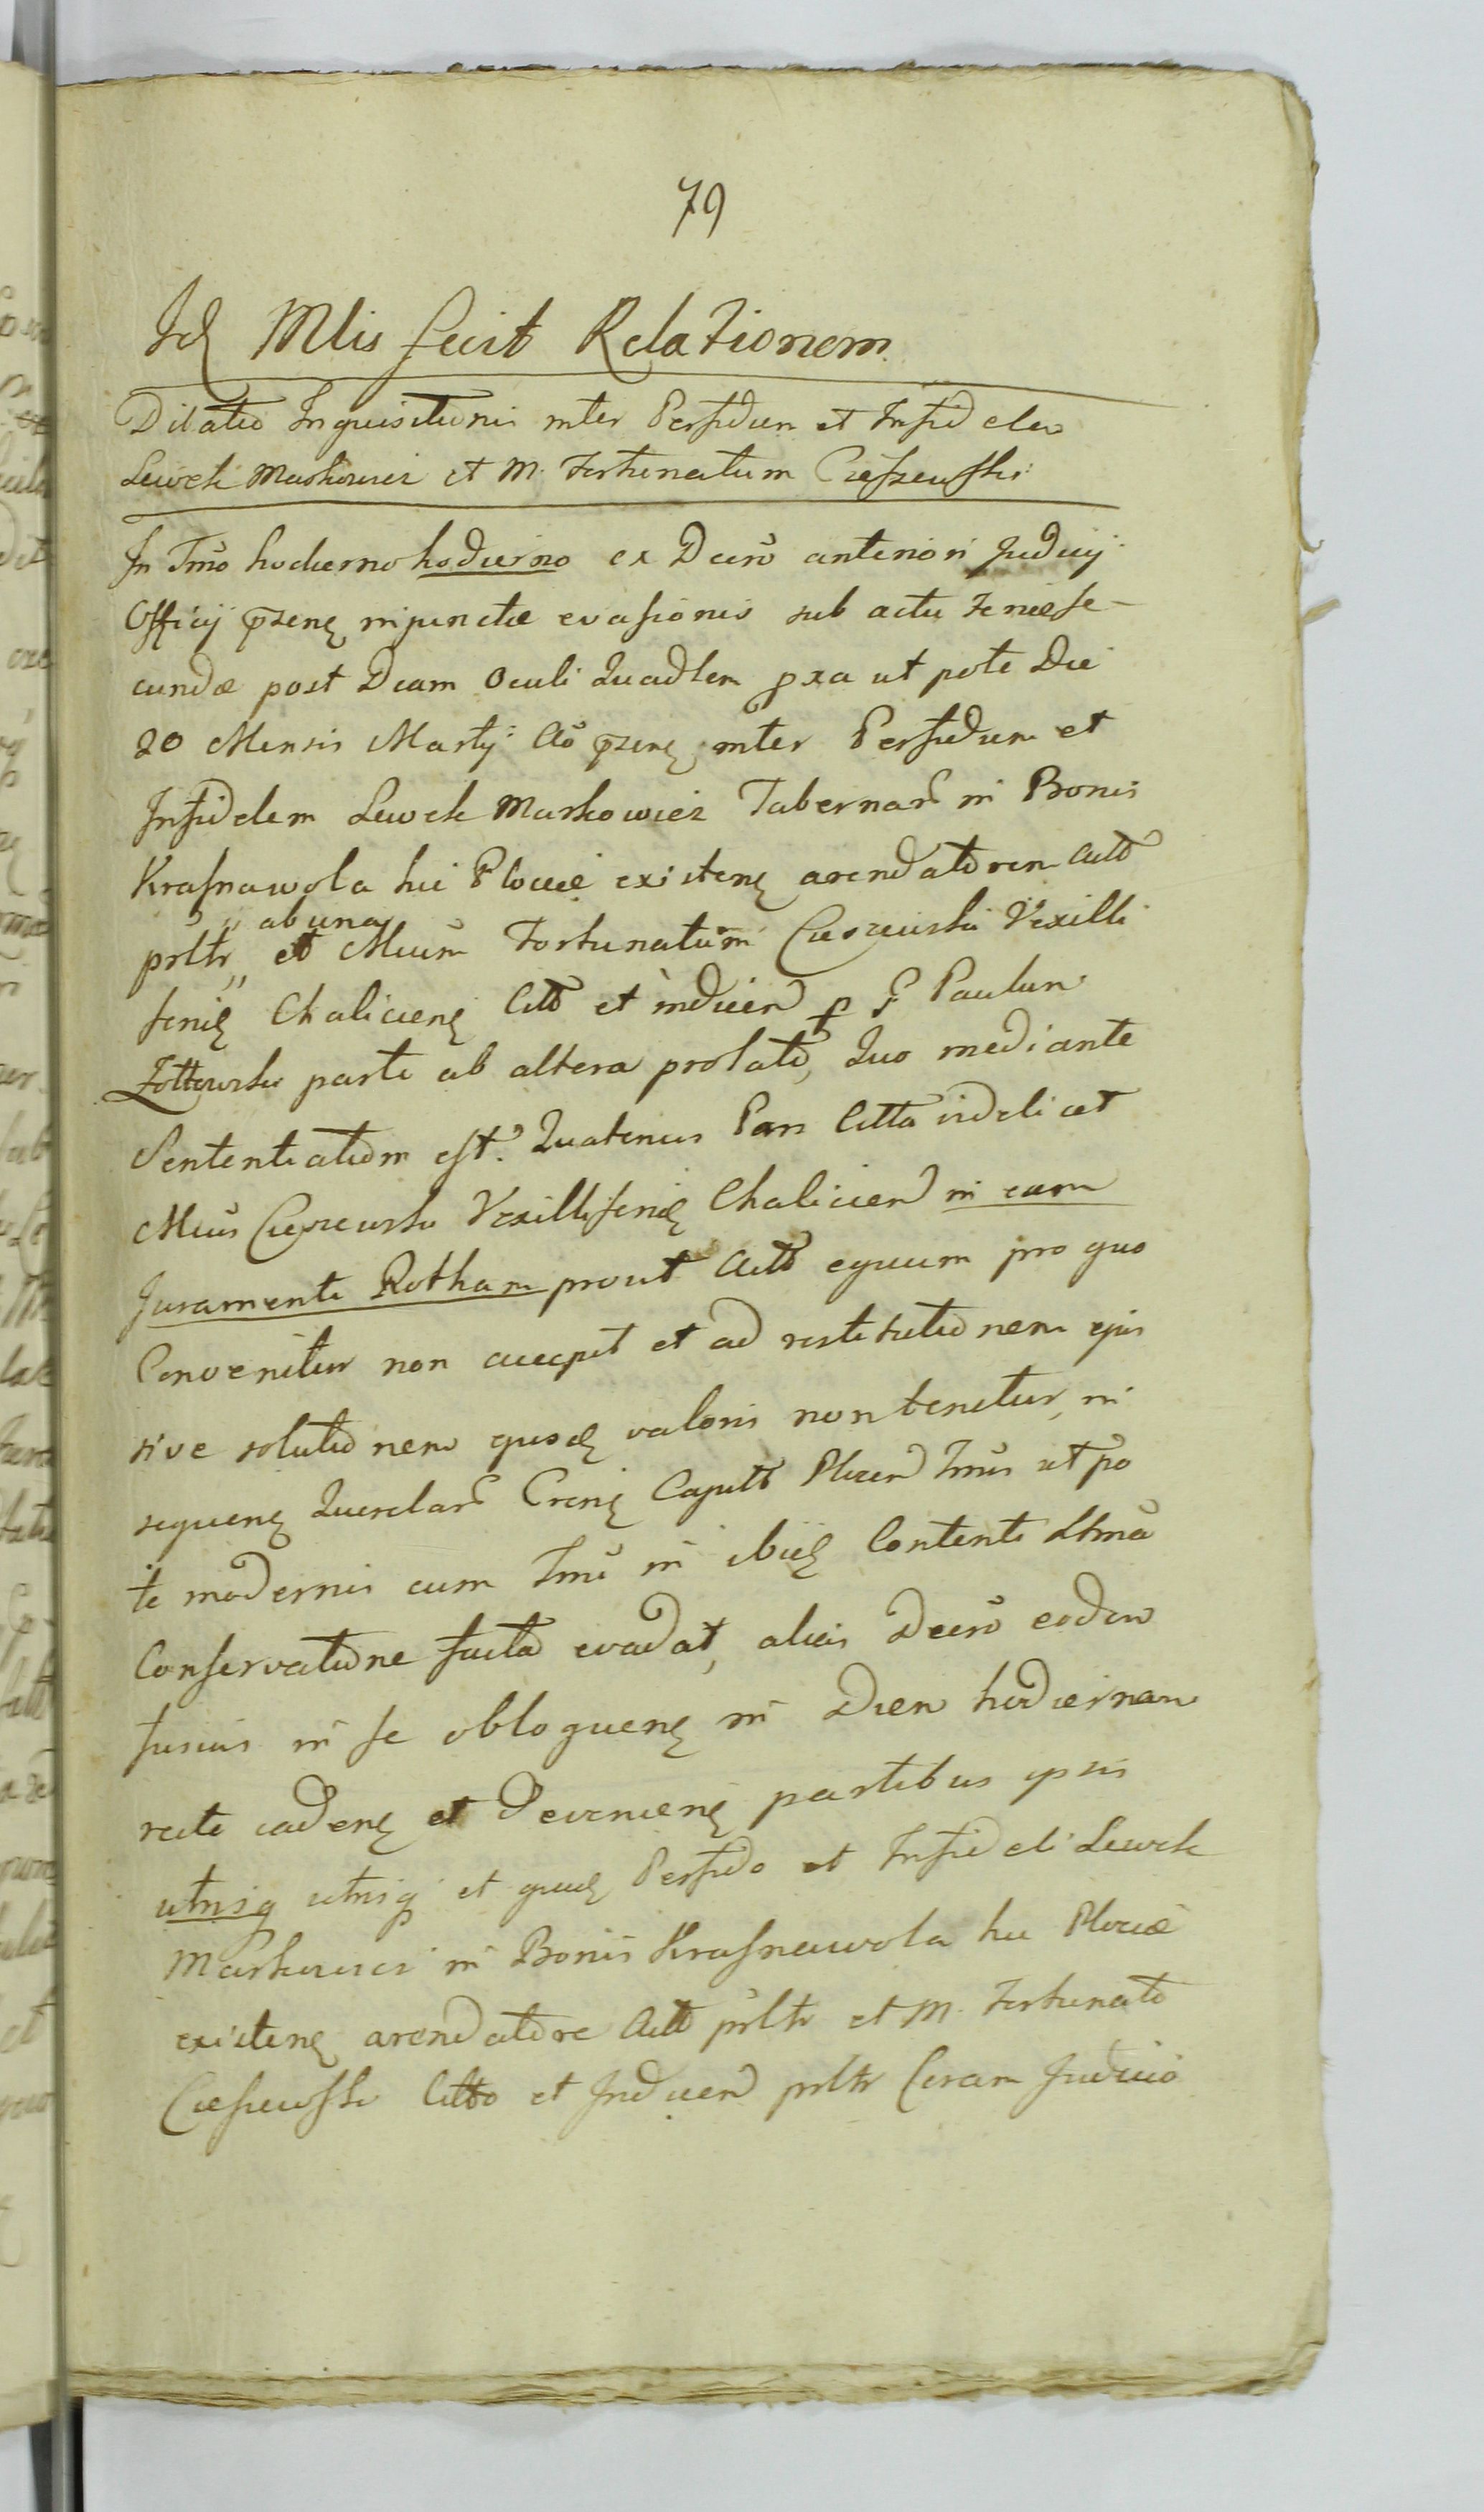 79
Id Mlis fecit Relationem
Dilatio Inquisitionis inter Perfidum et Infidelem
Lewek Markowicz et M. Fortunatum Cieszewski
In Tmõ hodierno hodierno ex Decrõ anteriori Judicij
Officij przeng injunctæ evasionis sub actu Feriæ se-
cundæ post Dcam Oculi Quadlem pxa ut pote Die
20 Mensis Martij Aõ przeng inter Perfidum et
Infidelem Lewek Markowicz Tabernar in Bonis
Krasnawola hic Plocæ existeng arendatorem Actõ
prltr ab una et Mcum Fortunatum Cieszewski Vexilli
ferid Chalicieng Citt et indicien p F Paulum
Zołtowski parte ab altera prolato, Quo mediante
Sententiatum est. Quatenus Pars Citta videlicet
Mcus Cieszewski Vexilliferid Chalicien in eam
Juramenti Rotham prout Actõ equum pro quo
Convenitur non accepit et ad restitutionem ejus
sive solutionem ejusd valoris non tenetur, in
sequeng Querelar Creng Capitt Plocen Tmis ut po
te modernis cum Tmi in ibid Contenti Ltma
Conservatione facta evadat, alias Decrõ eodem
fusius in se obloqueng in Diem hodiernam
recte cadeng et Devenieng partibus ipsis
utrisq utrisq et quid Perfido et Infideli Lewek
Markowicz in Bonis Krasnawola hic Plocæ
existeng arendatore Actõ prltr et M. Fortunato
Cieszewski Citto et Indicien prltr Coram Judicio